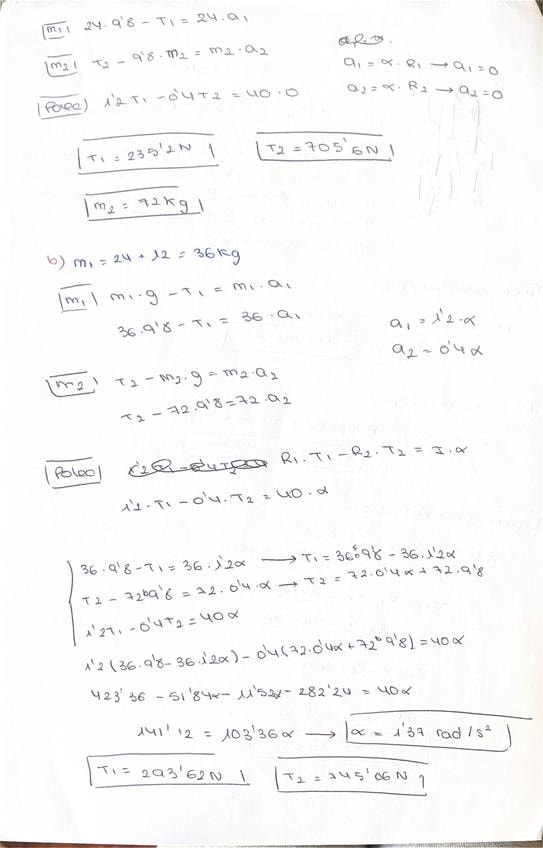 m₁| 24·9'8 - T₁ = 24·a₁
m₂| T₂ - 9'8·m₂ = m₂·a₂
a₁ = α·R₁ → a₁=0
a₂ = α·R₂ → a₂=0
Polea| 1'2T₁ - 0'4T₂ = 40·0
T₁ = 235'2N
T₂ = 705'6N
m₂ = 72kg
b) m₁ = 24 + 12 = 36kg
m₁| m₁·g - T₁ = m₁·a₁
36·9'8 - T₁ = 36·a₁
a₁ = 1'2·α
a₂ = 0'4α
m₂| T₂ - m₂·g = m₂·a₂
T₂ - 72·9'8 = 72·a₂
Polea| R₁·T₁ - R₂·T₂ = I·α
1'2·T₁ - 0'4·T₂ = 40·α
36·9'8 - T₁ = 36·1'2α → T₁ = 36·9'8 - 36·1'2α
T₂ - 72·9'8 = 72·0'4·α → T₂ = 72·0'4α + 72·9'8
1'2T₁ - 0'4T₂ = 40α
1'2(36·9'8 - 36·1'2α) - 0'4(72·0'4α + 72·9'8) = 40α
423'36 - 51'84α - 11'52α - 282'24 = 40α
141'12 = 103'36α → α = 1'37 rad/s²
T₁ = 293'62N
T₂ = 745'06N